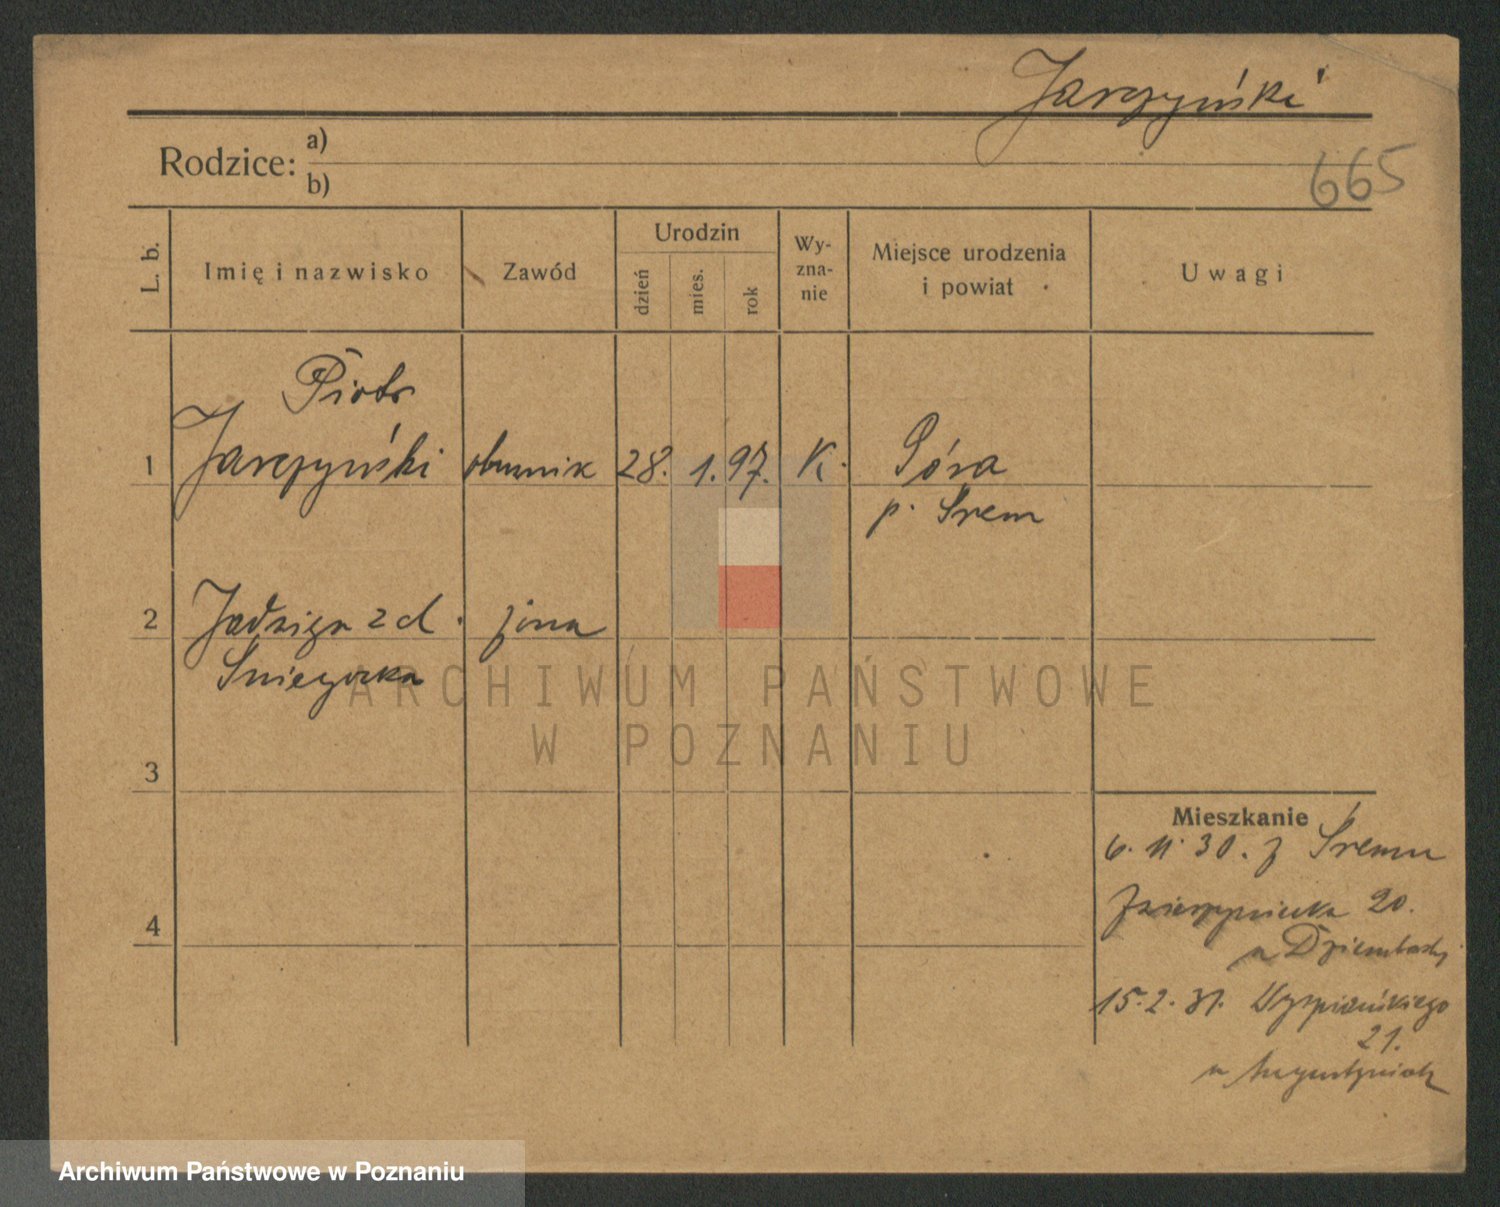 Jarczyński
Rodzice: a)
b)
665
L. b.
Imię i nazwisko
Zawód
Urodzin
dzień
mies.
rok
Wy-
zna-
nie
Miejsce urodzenia
i powiat
Uwagi
Piotr
1 Jarczyński obuwnik 28. 1. 97. K. Góra
p. Śrem
2 Jadwiga z d. żona
Śniegocka
ARCHIWUM PAŃSTWOWE
W POZNANIU
3
Mieszkanie
6. 11. 30. z Śremu
4
20.
u
15. 2. 31. Wyspiańskiego
21.
u Augustyniak
Archiwum Państwowe w Poznaniu